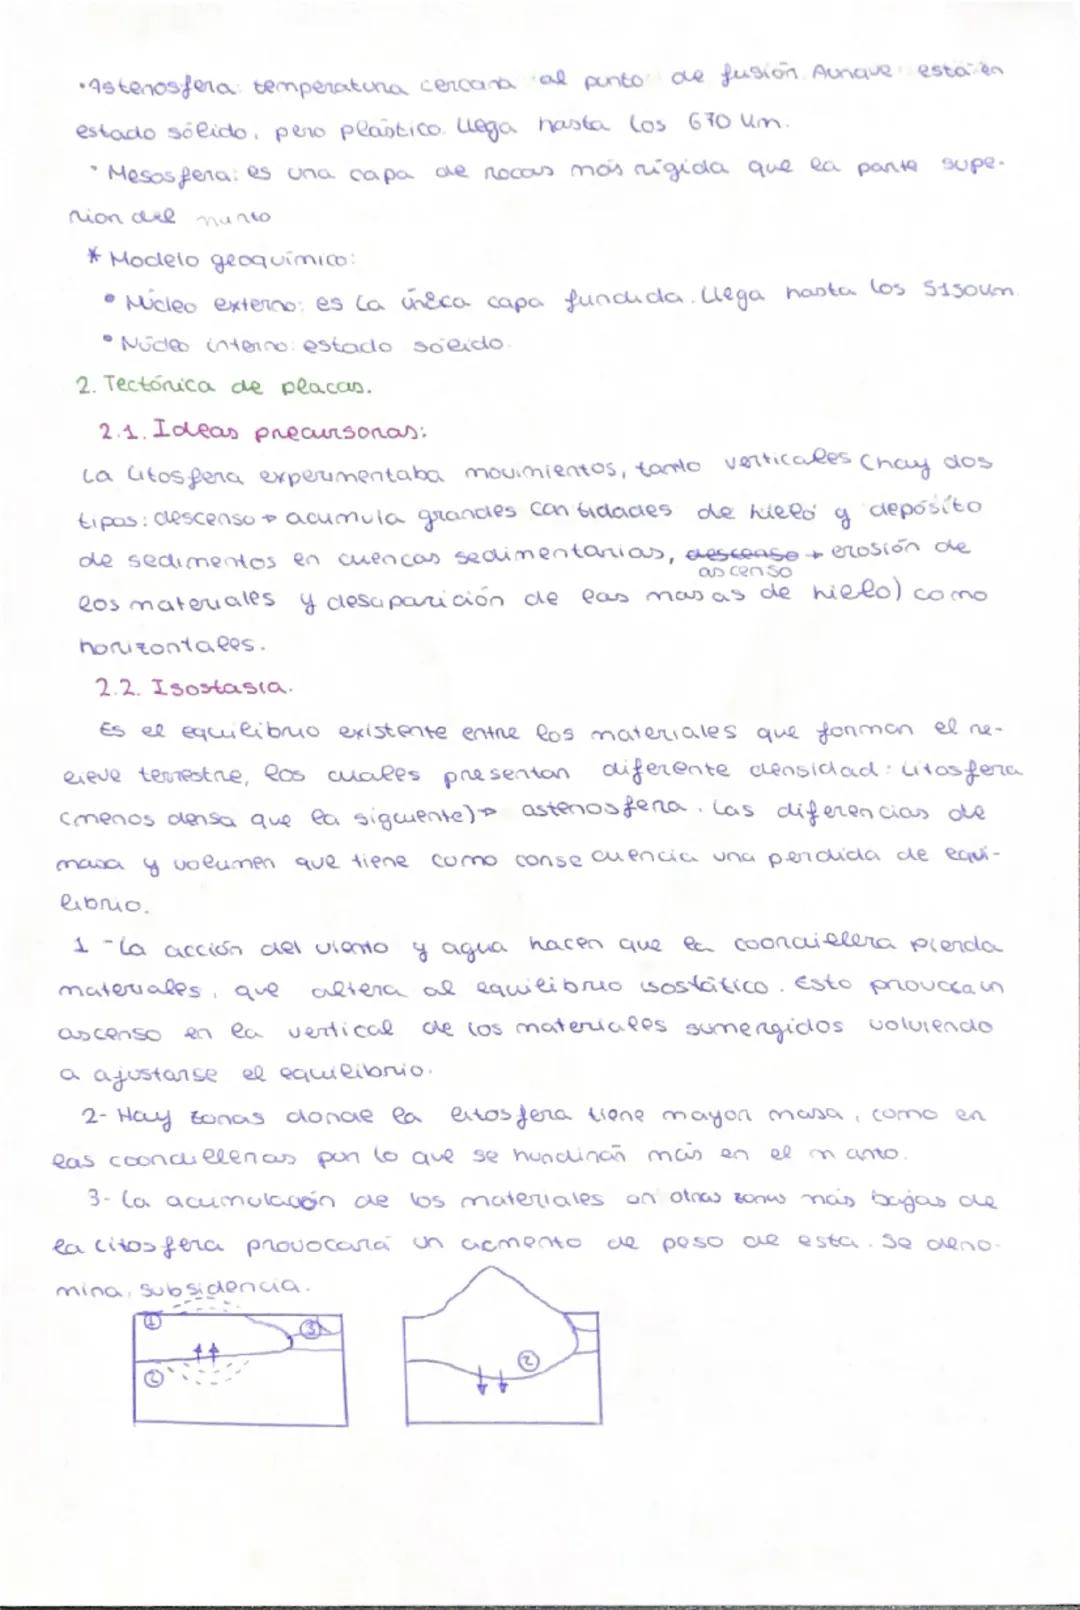 ·Astenosfera: temperatura cercana al punto de fusión. Aunque está en
estado sólido, pero plástico. Llega hasta los 670 Km.
· Mesosfera: es una capa de rocas más rígida que la parte supe-
rior del manto
* Modelo geoquímico:
· Núcleo externo: es la única capa fundida. Llega hasta los 5150Km.
· Núcleo interno: estado sólido.
2. Tectónica de placas.
2.1. Ideas precursoras:
La litosfera experimentaba movimientos, tanto verticales (hay dos
tipos: descenso → acumula grandes cantidades de hielo y depósito
de sedimentos en cuencas sedimentarias, descenso → erosión de
ascenso
los materiales y desaparición de las masas de hielo) como
horizontales.
2.2. Isostasia.
Es el equilibrio existente entre los materiales que forman el re-
lieve terrestre, los cuales presentan diferente densidad: litosfera
(menos densa que la siguiente) → astenosfera. Las diferencias de
masa y volumen que tiene como consecuencia una perdida de equi-
librio.
1 -La acción del viento y agua hacen que la coordillera pierda
materiales, que altera al equilibrio isostático. Esto provoca un
ascenso en la vertical de los materiales sumergidos volviendo
a ajustarse el equilibrio.
2- Hay zonas donde la litosfera tiene mayor masa, como en
las coordilleras por lo que se hundirán más en el manto.
3- La acumulación de los materiales en otras zonas más bajas de
la litosfera provocará un acmento de peso de esta. Se deno-
mina, subsidencia.
① ③
②
②